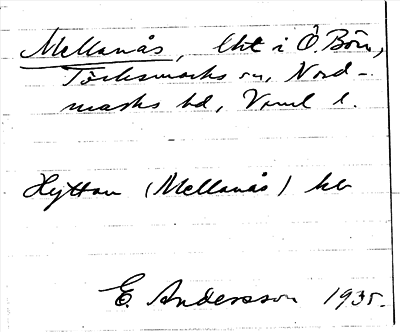 Mellanås, lht i Ö. Bön,
Töcksmarks sn, Nord-
marks hd, Vrml l.
Hyttan (Mellanås) hb
E. Andersson 1935.